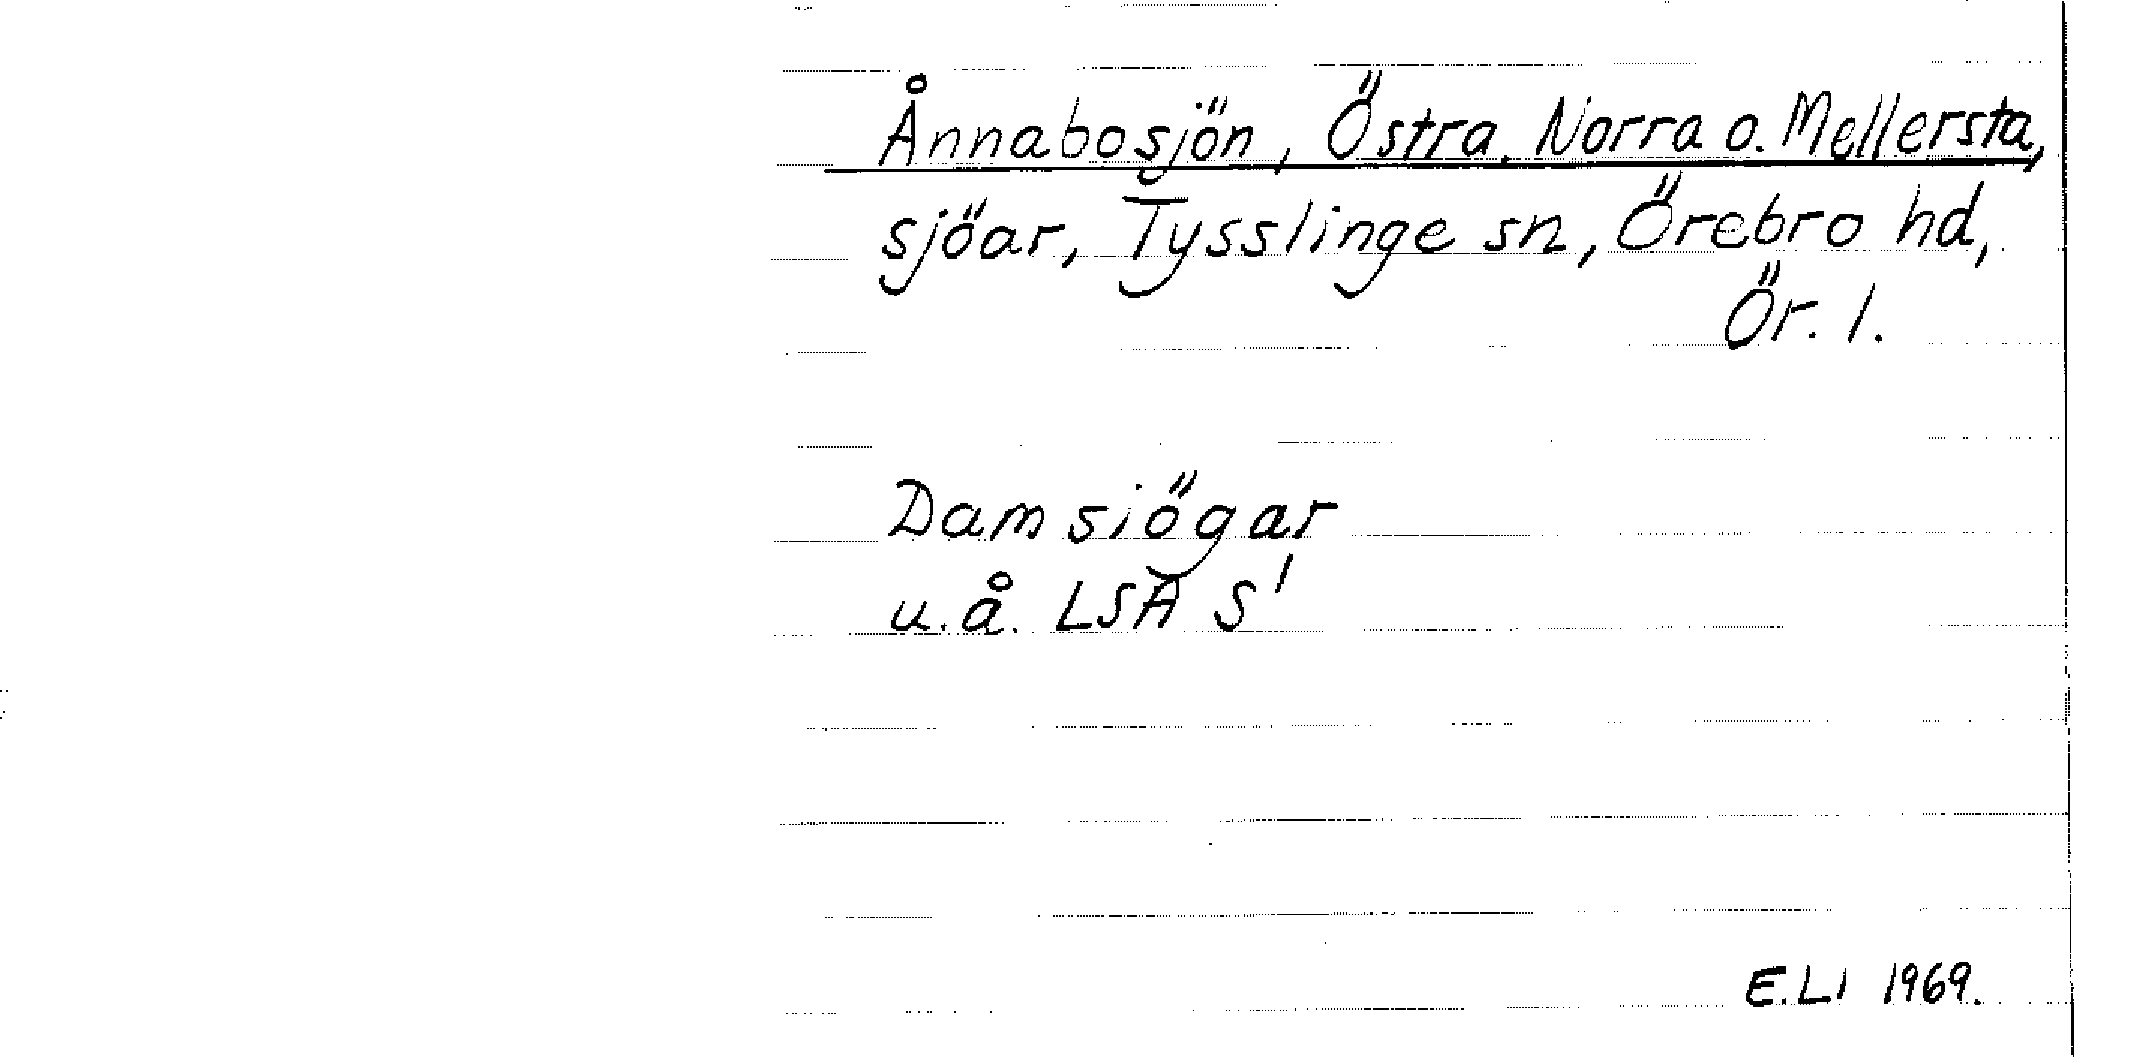 Ånnabosjön, Östra, Norra o. Mellersta,
sjöar, Tysslinge sn, Örebro hd,
Ör. l.
Damsiögar
u.å. LSA S'
E.Li 1969.